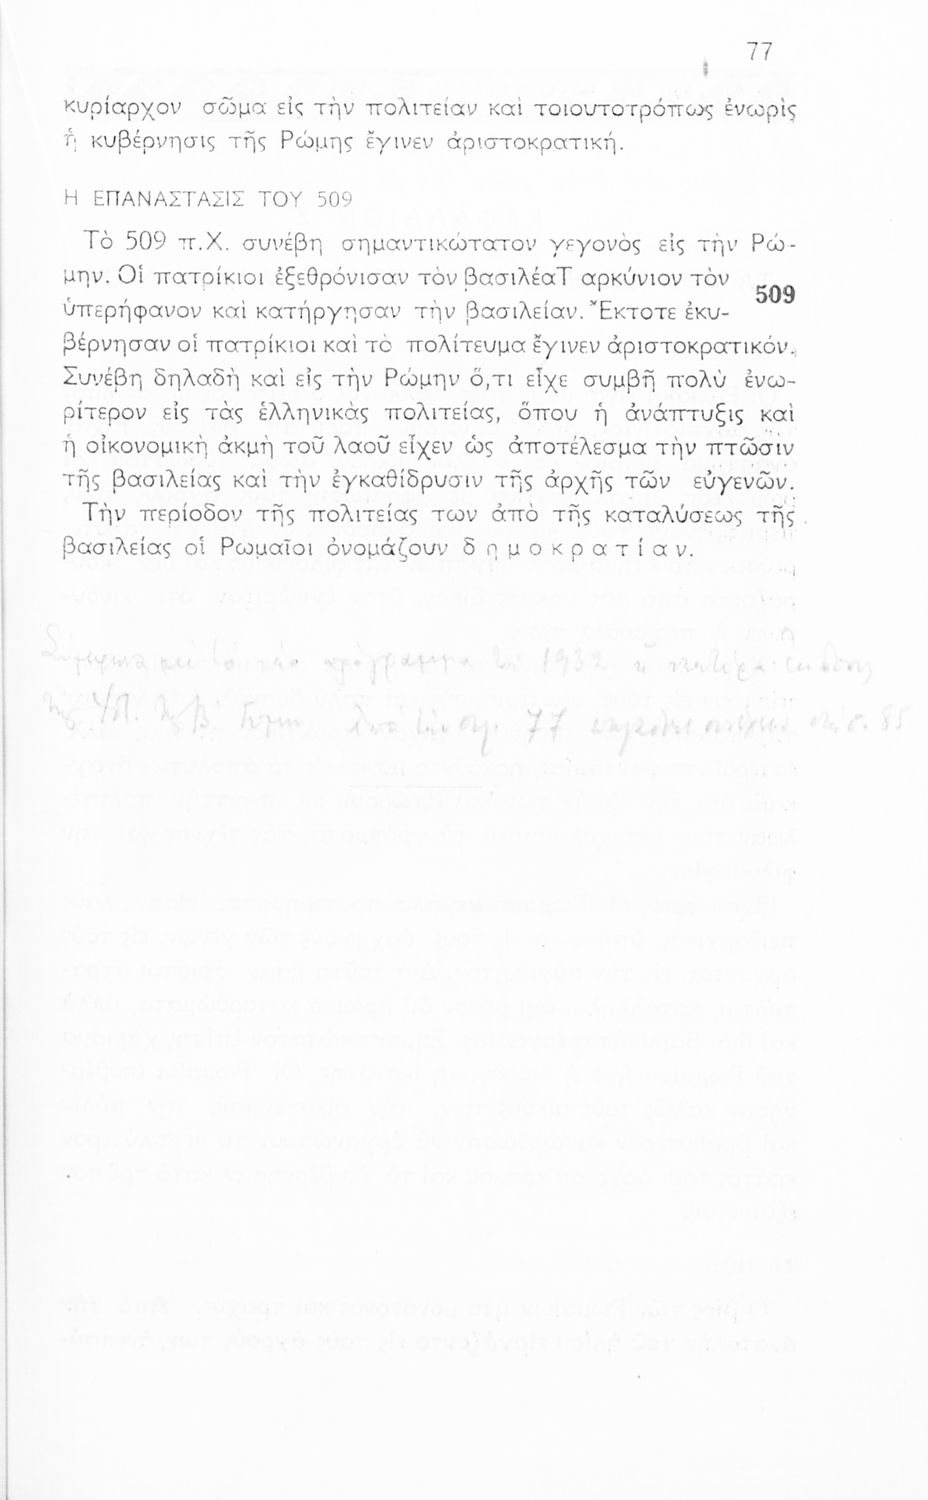 77
κυρίαρχον σῶμα εἰς τὴν πολιτείαν καὶ τοιουτοτρόπως ἐνωρὶς
ἡ κυβέρνησις τῆς Ρώμης ἔγινεν ἀριστοκρατική.
Η ΕΠΑΝΑΣΤΑΣΙΣ ΤΟΥ 509
Τὸ 509 π.Χ. συνέβη σημαντικώτατον γεγονὸς εἰς τὴν Ρώ-
μην. Οἱ πατρίκιοι ἐξεθρόνισαν τὸν βασιλέαΤ αρκύνιον τὸν
509
ὑπερήφανον καὶ κατήργησαν τὴν βασιλείαν. Ἔκτοτε ἐκυ-
βέρνησαν οἱ πατρίκιοι καὶ τὸ πολίτευμα ἔγινεν ἀριστοκρατικόν.
Συνέβη δηλαδὴ καὶ εἰς τὴν Ρώμην ὅ,τι εἶχε συμβῆ πολὺ ἐνω-
ρίτερον εἰς τὰς ἑλληνικὰς πολιτείας, ὅπου ἡ ἀνάπτυξις καὶ
ἡ οἰκονομικὴ ἀκμὴ τοῦ λαοῦ εἶχεν ὡς ἀποτέλεσμα τὴν πτῶσιν
τῆς βασιλείας καὶ τὴν ἐγκαθίδρυσιν τῆς ἀρχῆς τῶν εὐγενῶν.
Τὴν περίοδον τῆς πολιτείας των ἀπὸ τῆς καταλύσεως τῆς
βασιλείας οἱ Ρωμαῖοι ὀνομάζουν δημοκρατίαν.
πρόγραμμα 1932
77 85